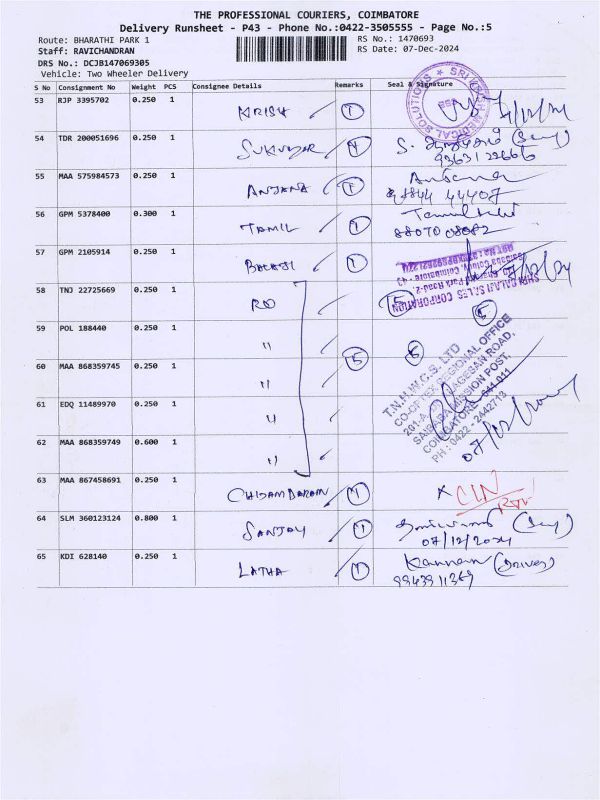 THE PROFESSIONAL COURIERS, COIMBATORE
Delivery Runsheet - P43 - Phone No.:0422-3505555 - Page No.:5
Route: BHARATHI PARK 1
RS No.: 1470693
Staff: RAVICHANDRAN
RS Date: 07-Dec-2024
DRS No.: DCJB147069305
Vehicle: Two Wheeler Delivery
S No Consignment No Weight PCS Consignee Details Remarks Seal & Signature
53 RJP 3395702 0.250 1 KRISH 1
54 TDR 200051696 0.250 1 SUKUMAR
55 MAA 575984573 0.250 1 ANJANA 1
56 GPM 5378400 0.300 1 TAMIL 1
8807008082
57 GPM 2105914 0.250 1 BALAJI 1
SHRI BALAJI SALES CORPORATION
58 TNJ 22725669 0.250 1 RO 5
59 POL 188440 0.250 1 " 5
60 MAA 868359745 0.250 1 "
61 EDQ 11489970 0.250 1 "
62 MAA 868359749 0.600 1 "
T.N.H.W.C.S. LTD
CO-OPTEX REGIONAL OFFICE
SAIBABA MISSION POST,
COIMBATORE - 641 011
PH : 0422 - 2442713
63 MAA 867458691 0.250 1 CHIDAMBARAM 1
64 SLM 360123124 0.800 1 SANJAY 1
07/12/2024
65 KDI 628140 0.250 1 LATHA 1 Kannan (Driver)
9943911369